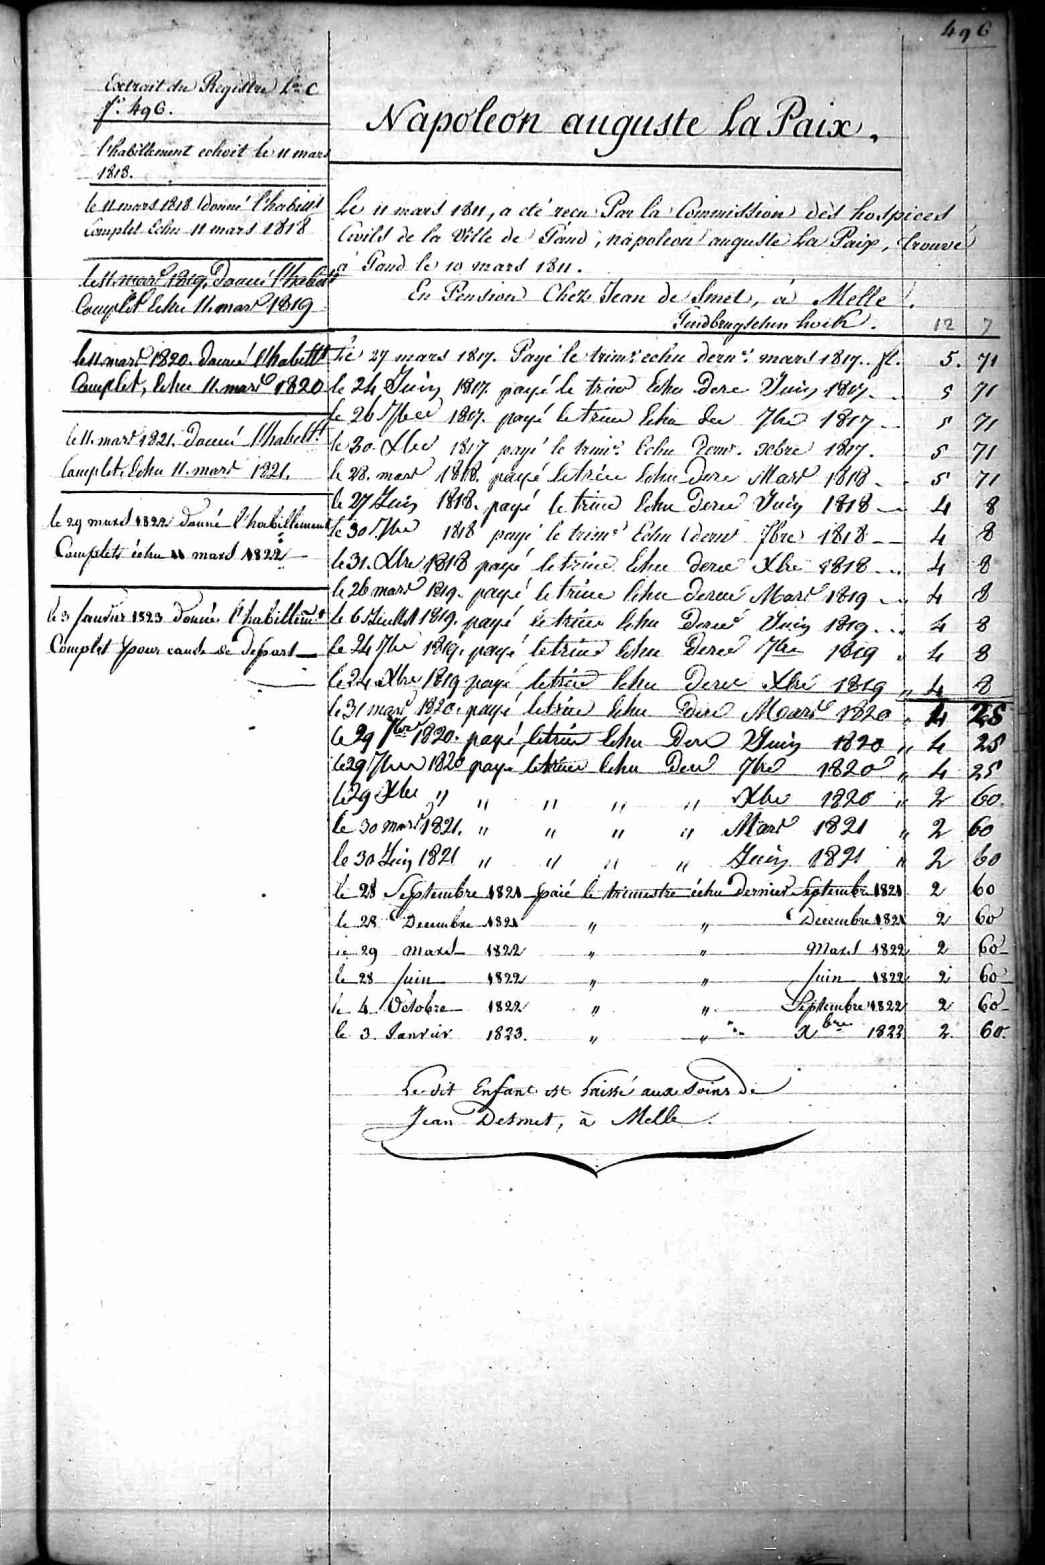 496
Extrait du Registre La C
fo. 496.
l'habillement echoit le 11 mars
1818.
le 11 mars 1818 donné l'habillt
Complet Echu 11 mars 1818
le 11. mars 1819. Donné l'habillt
Complet Echu 11. mars 1819
le 11. mars 1820. donné l'habillt
Complet, Echu 11. mars 1820
le 11. mars 1821. donné l'habillt
Complet, Echu 11. mars 1821.
le 29 mars 1822 donné l'habillement
Complete échu 11 mars 1822
le 3 Janvier 1823 donné l'habillemt
Complet pour cause de depart
Napoleon auguste La Paix.
Le 11 mars 1811, a eté recu Par la Commission des hospices
Civils de la Ville de Gand, napoleon auguste La Paix, trouvé
à Gand le 10 mars 1811.
En Pension Chez Jean de Smet, à Melle.
12 7
Le 27 mars 1817. Payé le trimre echu dernr. mars 1817. fl. 5. 71
le 24 Juin 1817. payé le trim Echu dere Juin 1817 5 71
le 26 7bre 1817. payé le trim Echu der 7bre 1817 5 71
le 30. Xbre 1817 payé le trimre. Echu Dernr. Xbre 1817. 5 71
le 28. mars 1818. payé le trim Echu dere Mars 1818 5 71
le 27 Juin 1818. payé le trim Echu dere Juin 1818 4 8
le 30. 7bre 1818 payé le trimre Echu dernr 7bre 1818 4 8
le 31. Xbre 1818 payé le trim Echu dere Xbre 1818 4 8
le 26 mars 1819. payé le trim Echu dere Mars 1819 4 8
le 6 Juillet 1819. payé le trim Echu Dere Juin 1819 4 8
le 24 7bre 1819. payé le trim Echu Dere 7bre 1819 4 8
le 24 Xbre 1819 payé le trim Echu dere Xbre 1819 " 4 8
le 31 mars 1820. payé le trim Echu Dere Mars 1820 " 4 25
le 29 1820. payé le trim Echu Dere Juin 1820 " 4 25
le 29 7bre 1820 payé le trim Echu Der 7bre 1820 " 4 25
le 29 Xbre " " " " " Xbre 1820 " 2 60.
le 30 mars 1821. " " " " Mars 1821 " 2 60
le 30 Juin 1821 " " " " Juin 1821 " 2 60
le 28 Septembre 1821 paié le trimestre échu dernier Septembre 1821 2 60
le 28 Decembre 1821 " " Decembre 1821 2 60
le 29 mars 1822 " " Mars 1822 2 60
le 28 Juin 1822 " " Juin 1822 2 60
le 4 Octobre 1822 " " Septembre 1822 2 60
le 3. Janvier 1823. " " Xbre 1822 2. 60.
Le dit Enfant est Laissé aux Soins de
Jean Desmet, à Melle.